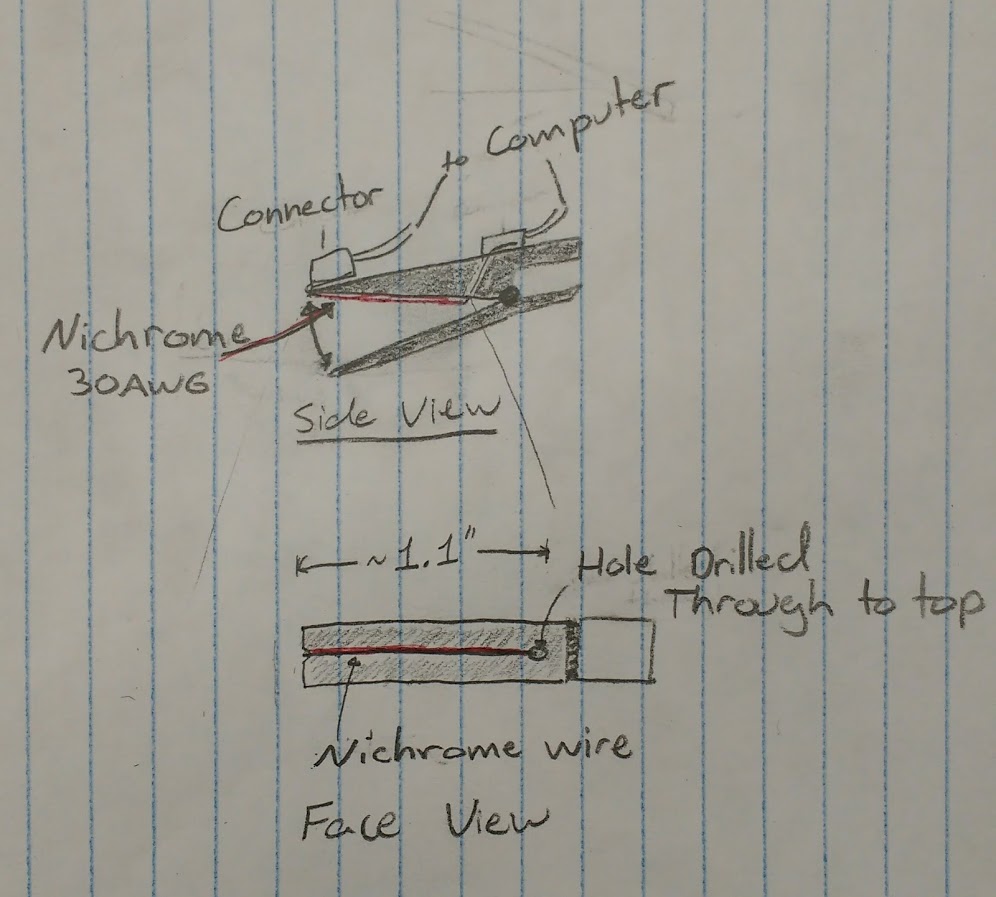 to Computer
Connector
Nichrome
30AWG
Side View
~1.1"
Hole Drilled
Through to top
Nichrome wire
Face View